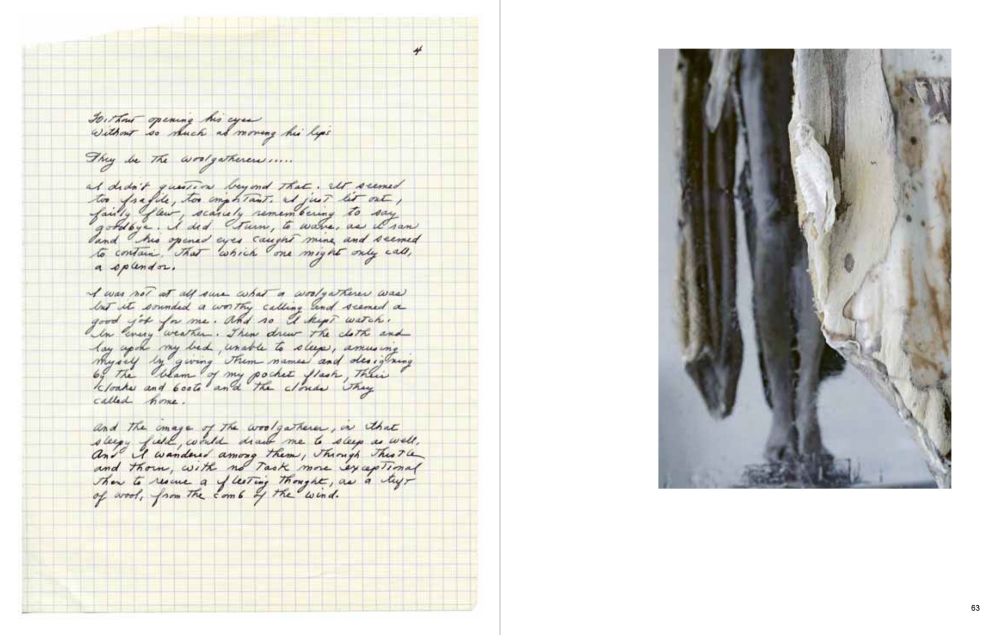 4
Without opening his eyes
Without so much as moving his lips
They be the woolgatherers.....
I didn't question beyond that. It seemed
too fragile, too important. I just lit out,
fairly flew, scarcely remembering to say
goodbye. I did turn, to wave, as I ran
and his opened eyes caught mine and seemed
to contain that which one might only call,
a splendor.
I was not at all sure what a woolgatherer was
but it sounded a worthy calling and seemed a
good job for me. And so I kept watch.
In every weather. Then drew the cloth and
lay upon my bed, unable to sleep, amusing
myself by giving them names and designing
by the beam of my pocket flash, their
cloaks and boots and the clouds they
called home.
And the image of the woolgatherer, in that
sleepy field, would draw me to sleep as well.
And I wandered among them, through thistle
and thorn, with no task more exceptional
then to rescue a fleeting thought, as a tuft
of wool, from the comb of the wind.
63